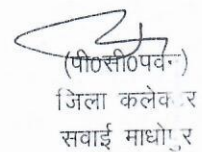 (पी०सी०पवन)
जिला कलेक्टर
सवाई माधोपुर